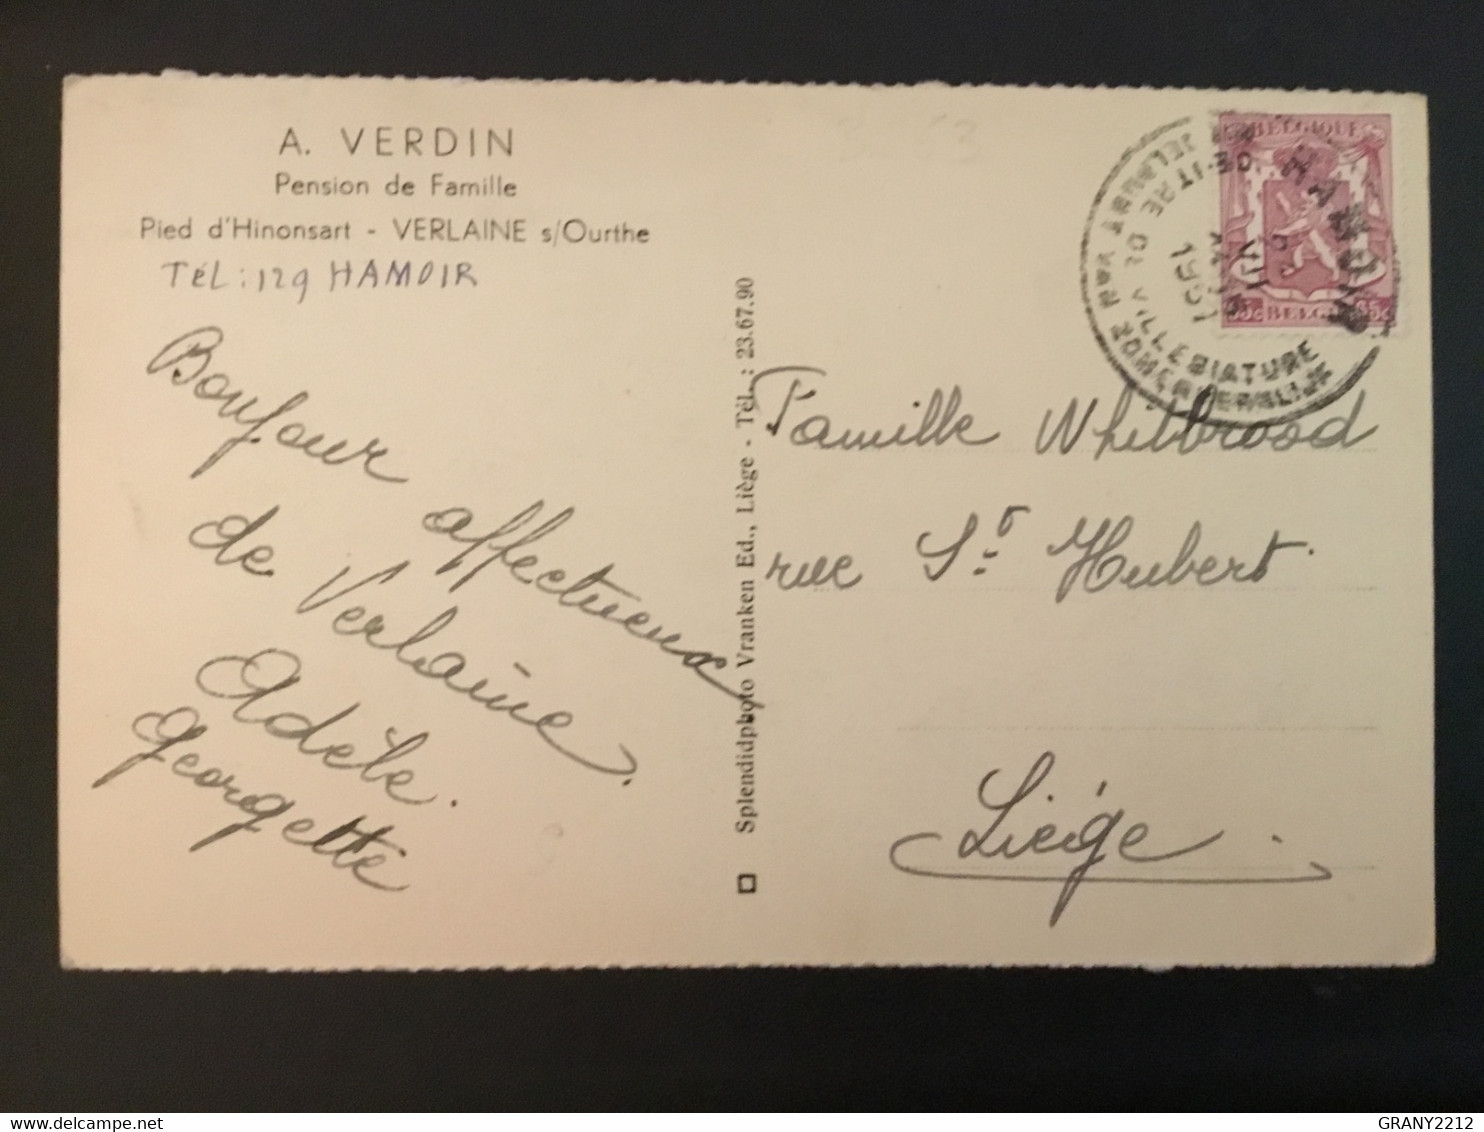 A. VERDIN
Pension de Famille
Pied d'Hinonsart - VERLAINE s/Ourthe
TéL: 129 HAMOIR
Bonjour affectueux
de Verlaine.
Adèle.
Georgette
Splendidphoto Vranken Ed., Liège - Tél. : 23.67.90
BELGIQUE
BELGIE
HAMOIR
1951
VILLEGIATURE
Famille Whitbrood
rue St Hubert.
Liége.
delcampe.net
GRANY2212